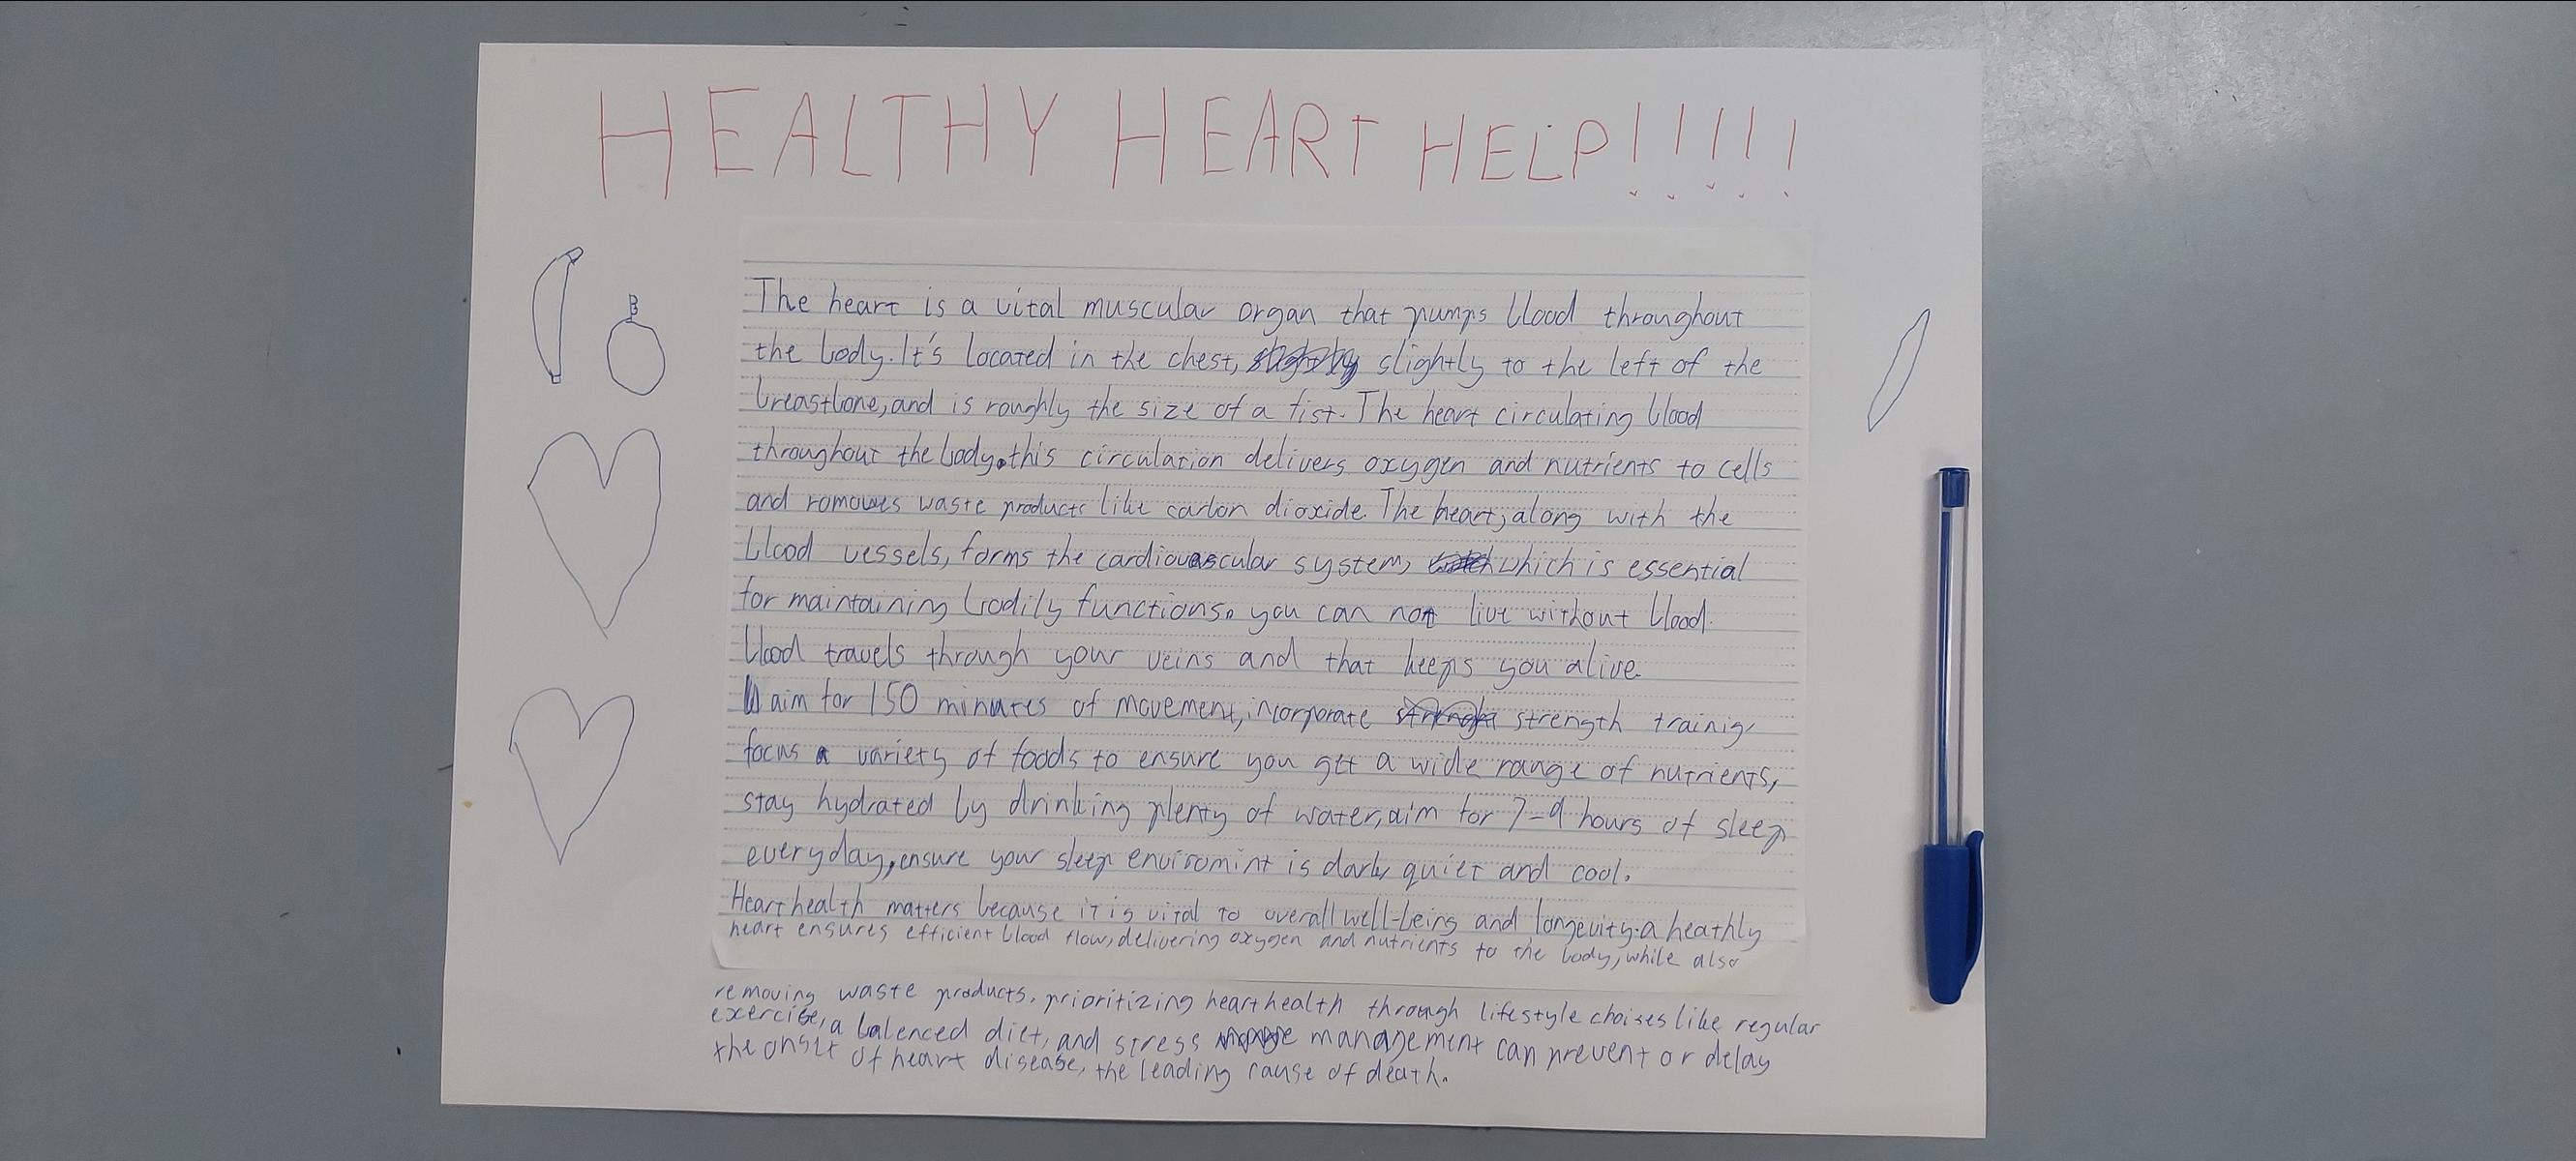 HEALTHY HEART HELP!!!!!
The heart is a vital muscular organ that pumps blood throughout
the body. It's located in the chest, slightly to the left of the
breastbone, and is roughly the size of a fist. The heart circulating blood
throughout the body. this circulation delivers oxygen and nutrients to cells
and romoves waste products like carbon dioxide. The heart, along with the
blood vessels, forms the cardiovascular system, which is essential
for maintaining bodily functions. you can not live without blood.
blood travels through your veins and that keeps you alive.
aim for 150 minutes of movement, incorporate strength trainig,
focus a variety of foods to ensure you get a wide range of nutrients,
stay hydrated by drinking plenty of water, aim for 7-9 hours of sleep
everyday, ensure your sleep enviromint is dark, quiet and cool.
Heart health matters because it is vital to overall well-being and longevity. a heathly
heart ensures efficient blood flow, delivering oxygen and nutrients to the body, while also
removing waste products. prioritizing heart health through lifestyle choises like regular
exercise, a balenced diet, and stress management can prevent or delay
the onset of heart disease, the leading cause of death.